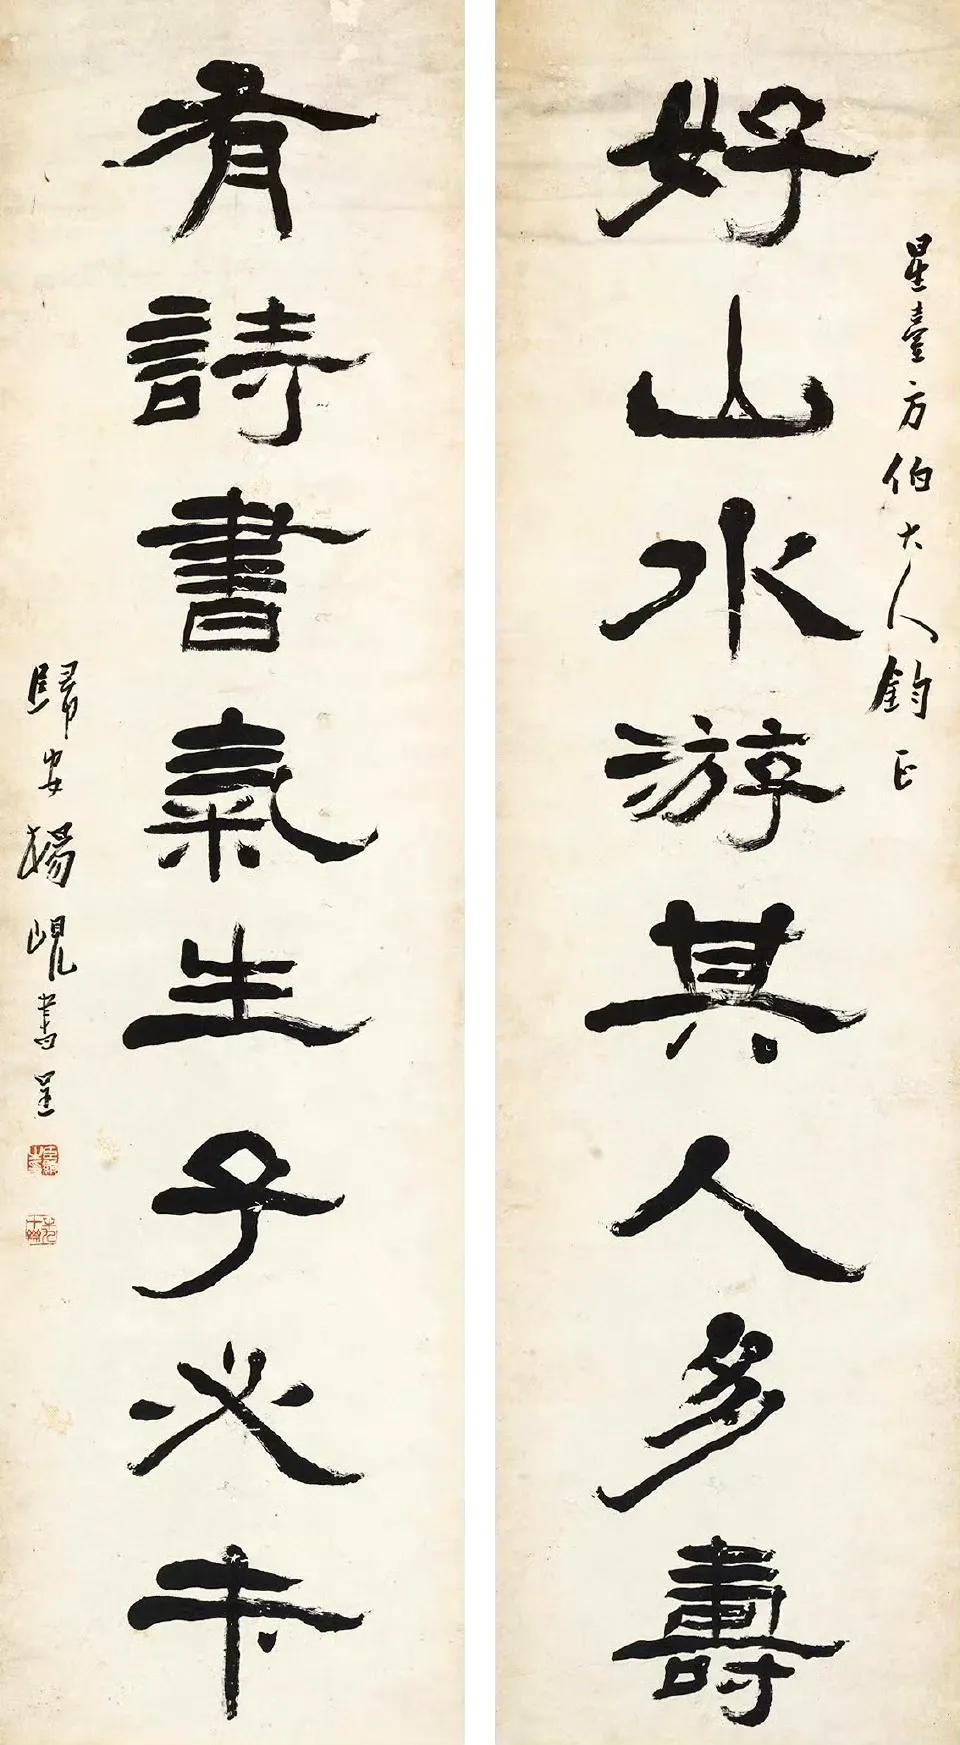 星臺方伯大人鈞正
好山水游其人多壽
有詩書氣生子必才
歸安楊峴書呈